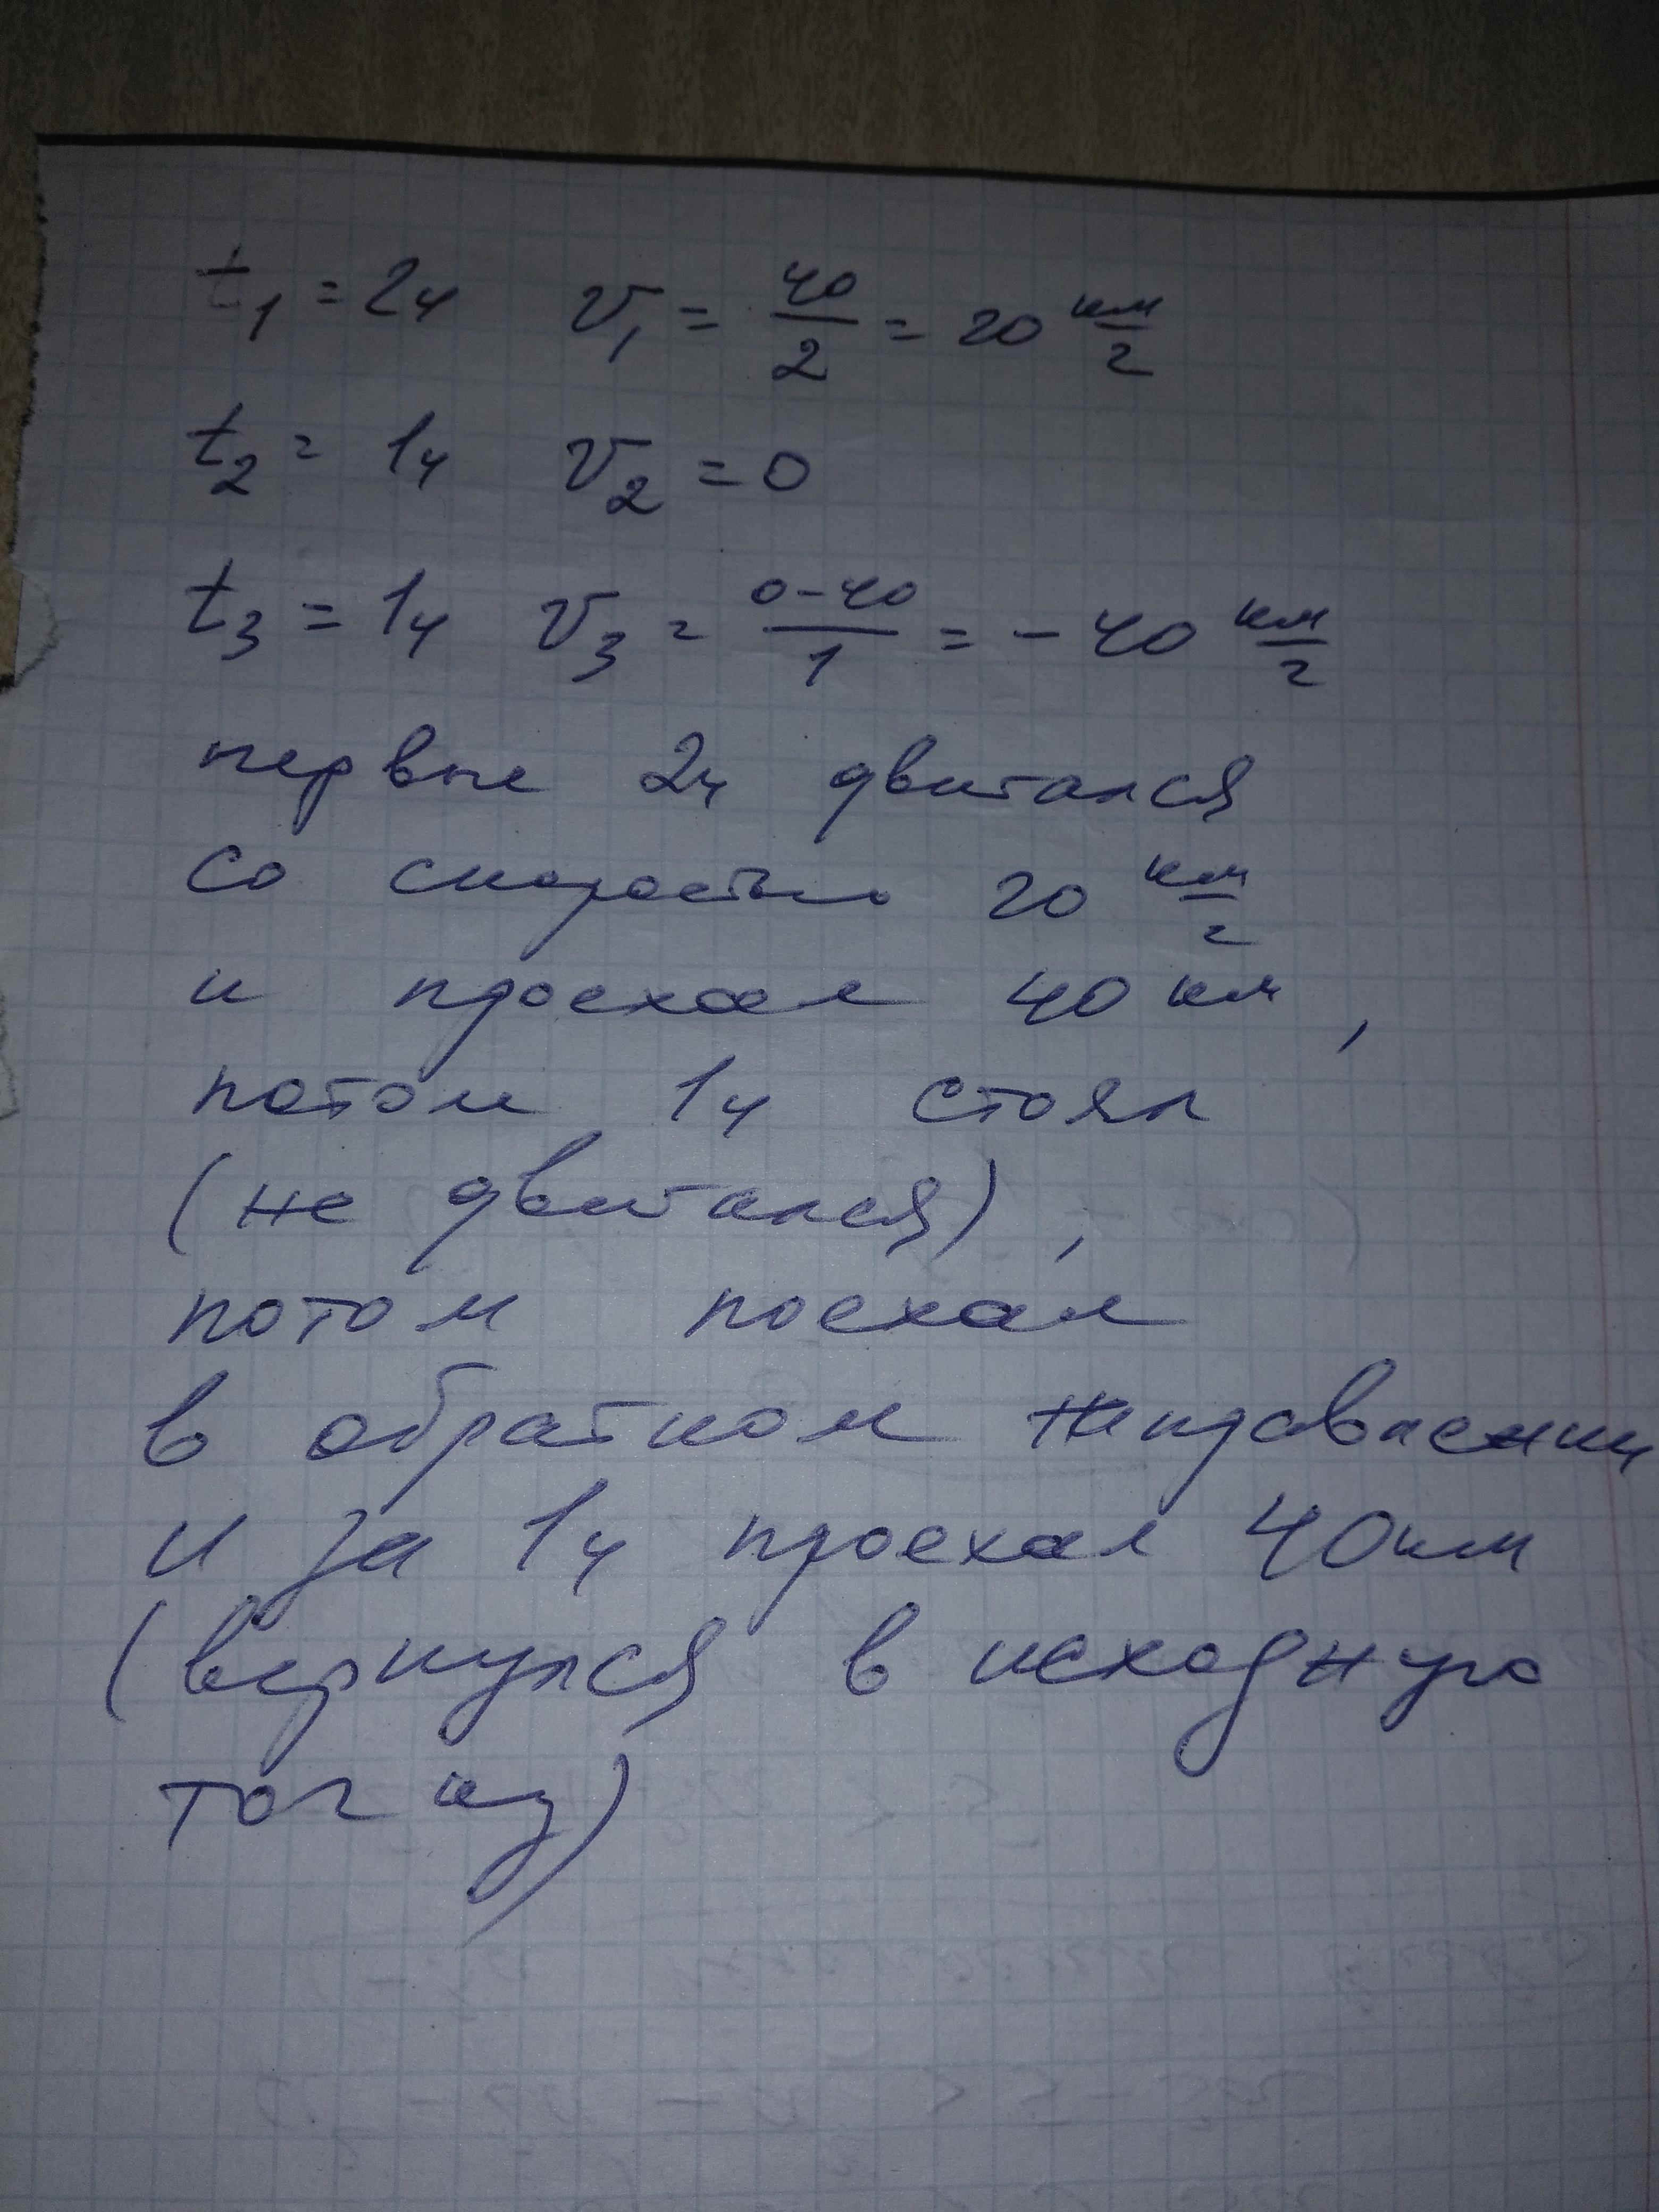 t₁ = 2ч v₁ = 40/2 = 20 км/ч
t₂ = 1ч v₂ = 0
t₃ = 1ч v₃ = (0-40)/1 = -40 км/ч
первые 2ч двигался
со скоростью 20 км/ч
и проехал 40 км,
потом 1ч стоял
(не двигался),
потом поехал
в обратном направлении
и за 1ч проехал 40км
(вернулся в исходную
точку)